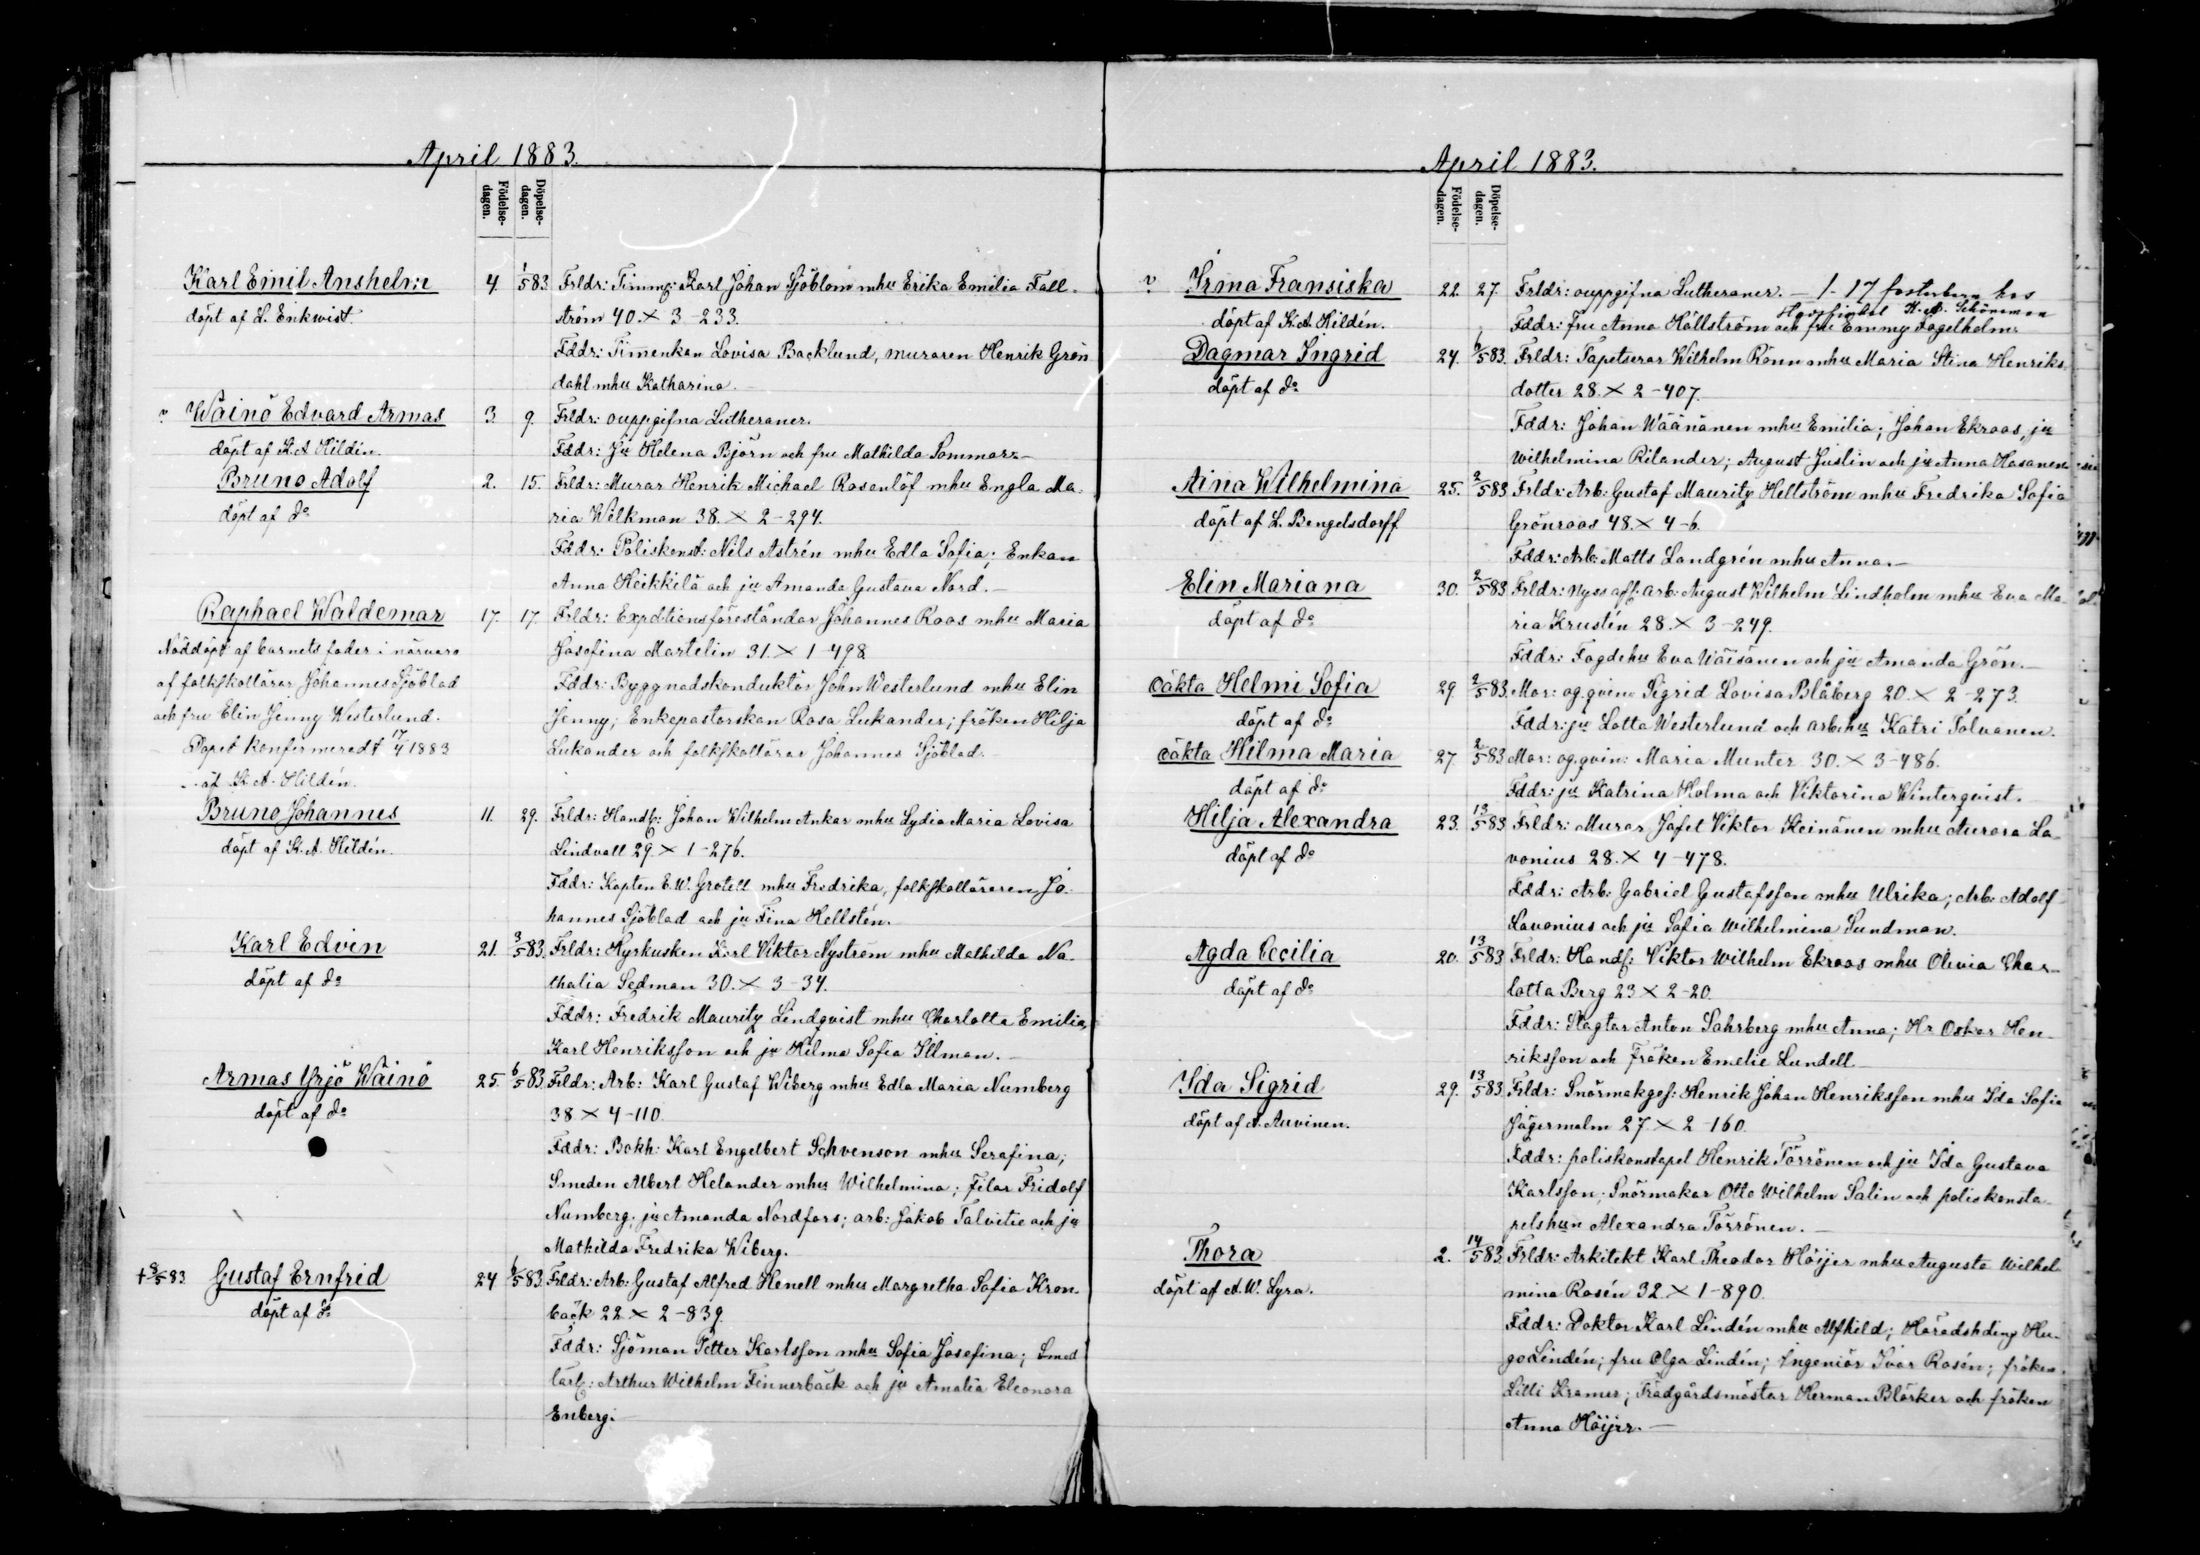 April 1883.
Födelse-
dagen.
Döpelse-
dagen.
Karl Emil Anshelm
döpt af L. Enkwist.
4. 1/5 83 Frldr: Timmg: Karl Johan Sjöblom mhu Erika Emilia Fall-
ström 40. × 3-233.
Fddr: Timenkan Lovisa Backlund, muraren Henrik Grön
dahl mhu Katharina.
v Wäinö Edvard Armas
döpt af K. A. Hildén.
3. 9. Frldr: ouppgifna Lutheraner.
Fddr: Ju Helena Björn och fru Mathilda Sommar.—
Bruno Adolf
döpt af do
2. 15. Frldr: Murar Henrik Michael Rosenlöf mhu Engla Ma-
ria Wilkman 38. × 2-294.
Fddr: Poliskonst: Nils Astrén mhu Edla Sofia; Enkan
Anna Heikkilä och ju Amanda Gustava Nord.—
Raphael Waldemar
Nöddöpt af barnets fader i närvaro
af folkskollärar Johannes Sjöblad
och fru Elin Jenny Westerlund.
Dopet konfirmeradt 17/4 1883
af K. A. Hildén.
17. 17. Frldr: Expeditionsföreståndar Johannes Roos mhu Maria
Josefina Martelin 31. × 1-498
Fddr: Byggnadskonduktör John Westerlund mhu Elin
Jenny; Enkepastorskan Rosa Lukander; fröken Hilja
Lukander och folkskollärar Johannes Sjöblad.
Bruno Johannes
döpt af K. A. Hildén.
11. 29. Frldr: Handl: Johan Wilhelm Ankar mhu Lydia Maria Lovisa
Lindvall 29. × 1-276.
Fddr: Kapten E. W. Grotell mhu Fredrika, folkskolläraren Jo-
hannes Sjöblad och ju Fina Hellstén.
Karl Edvin
döpt af do
21. 3/5 83. Frldr: Hyrkusken Karl Viktor Nyström mhu Mathilda Na-
thalia Sedman 30. × 3-34.
Fddr: Fredrik Mauritz Lindqvist mhu Charlotta Emilia,
Karl Henriksson och ju Hilma Sofia Illman.
Armas Yrjö Wäinö
döpt af do
25. 6/5 83. Frldr: Arb: Karl Gustaf Wiberg mhu Edla Maria Numberg
38 × 4-110.
Fddr: Bokh: Karl Engelbert Schvenson mhu Serafina;
Smeden Albert Helander mhu Wilhelmina; Filar Fridolf
Numberg, ju Amanda Nordfors; arb: Jakob Talvitie och ju
Mathilda Fredrika Wiberg.
+ 8/5 83 Gustaf Ernfrid
döpt af do
24 6/5 83. Frldr: Arb: Gustaf Alfred Henell mhu Margretha Sofia Kron-
bäck 22. × 2-839.
Fddr: Sjöman Petter Karlsson mhu Sofia Josefina; Smed
lärl: Arthur Wilhelm Finnerbäck och ju Amalia Eleonora
Enberg.
April 1883.
Födelse-
dagen.
Döpelse-
dagen.
v Irma Fransiska
döpt af K. A. Hildén.
22. 27. Frldr: ouppgifna Lutheraner. — 1-17 fosterbarn hos
K. A. Schöneman
Fddr: fru Anna Hällström och fru Emmy Fagelholm.
Dagmar Ingrid
döpt af do
24. 6/5 83. Frldr: Tapetserar Wilhelm Rönn mhu Maria Stina Henriks-
dotter 28. × 2-407.
Fddr: Johan Wäänänen mhu Emilia; Johan Ekroos, ju
Wilhelmina Rilander; August Juslin och ju Anna Hasanen
Aina Wilhelmina
döpt af L. Bengelsdorff
25. 2/5 83 Frldr: Arb: Gustaf Mauritz Hellström mhu Fredrika Sofia
Grönroos 48. × 4-6.
Fddr: Arb: Matts Landgrén mhu Anna.—
Elin Mariana
döpt af do
30. 2/5 83 Frldr: Nyss afl: arb: August Wilhelm Lindholm mhu Eva Ma-
ria Krustin 28. × 3-249.
Fddr: Fogdehu Eva Wäisänen och ju Amanda Grön.—
oäkta Helmi Sofia
döpt af do
29 2/5 83. Mor: og. qvin: Sigrid Lovisa Blåberg 20. × 2-273.
Fddr: ju Lotta Westerlund och arb:hu Katri Tolvanen.
oäkta Hilma Maria
döpt af do
27 2/5 83 Mor: og. qvin: Maria Munter 30. × 3-486.
Fddr: ju Katrina Holma och Viktorina Winterqvist.
Hilja Alexandra
döpt af do
23. 13/5 83 Frldr: Murar Jafet Viktor Keinänen mhu Aurora La-
vonius 28. × 4-478.
Fddr: Arb: Gabriel Gustafsson mhu Ulrika; Arb: Adolf
Lavonius och ju Sofia Wilhelmina Sundman.
Agda Cecilia
döpt af do
20. 13/5 83 Frldr: Handl: Viktor Wilhelm Ekroos mhu Olivia Char-
lotta Berg 23 × 2-20.
Fddr: Slagtar Anton Sahrberg mhu Anna; Hr Oskar Hen-
riksson och Fröken Emelie Lundell
Ida Sigrid
döpt af A. Auvinen.
29. 13/5 83. Frldr: Snörmakges: Henrik Johan Henriksson mhu Ida Sofia
Jägermalm 27 × 2-160.
Fddr: poliskonstapel Henrik Törrönen och ju Ida Gustava
Karlsson; Snörmakar Otto Wilhelm Salin och poliskonsta-
pelshun Alexandra Törrönen.—
Thora
döpt af A. W. Lyra.
2. 14/5 83 Frldr: Arkitekt Karl Theodor Höijer mhu Augusta Wilhel-
mina Rosén 32. × 1-890.
Fddr: Doktor Karl Lindén mhu Alfhild; Häradshding Hu-
go Lindén; fru Olga Lindén; Ingeniör Ivar Rosén; fröken
Lilli Kramer; Trädgårdsmästar Herman Blärker och fröken
Anna Höijer.—